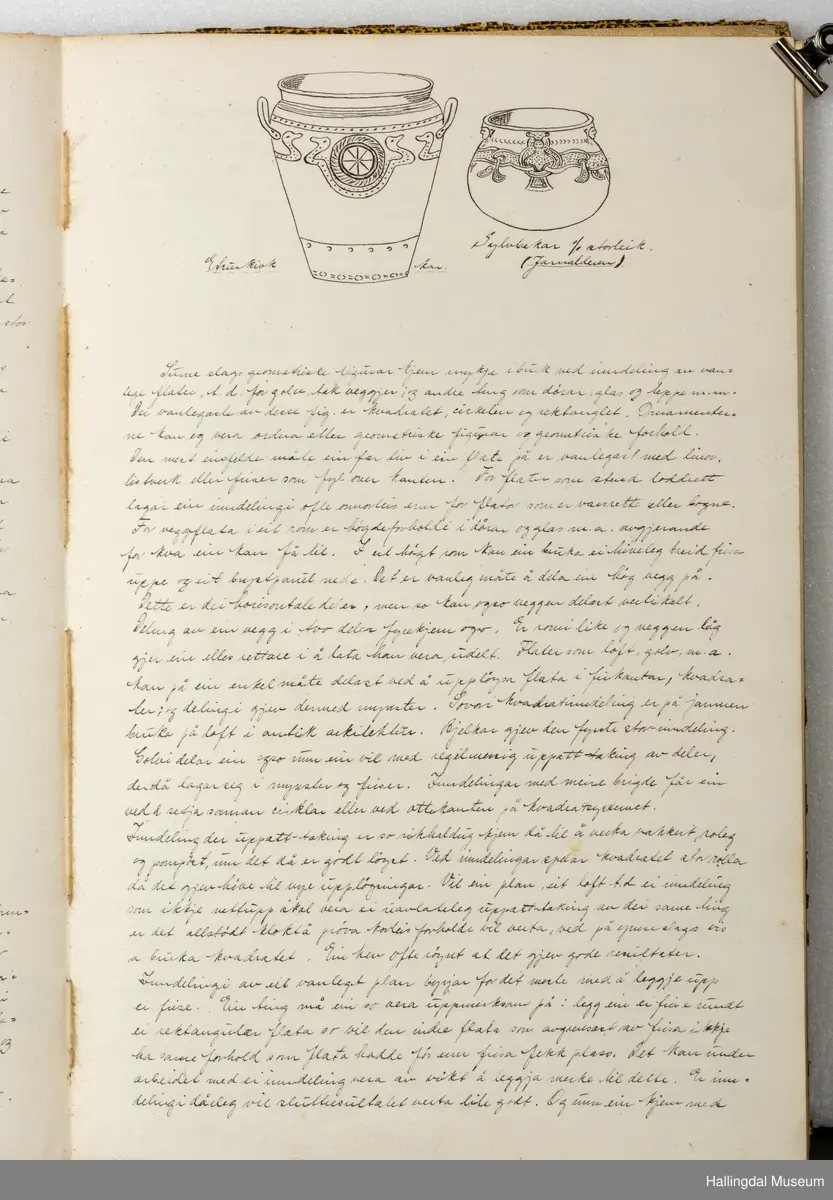 Sylvbekar ½ storleik.
Etruskisk kar. (Jarnalderen).
Sume slags geometriske figurar kjem mykje i bruk ved inndeling av van-
lege flater, t. d. for golv, tak veggjer; og andre ting som dörar, glas og teppe m.m.
Dei vanlegaste av desse fig. er kvadratet, cirkelen og rektanglet. Ornamenter-
ne kan og vera ordna etter geometriske figurar og geometriske forhold.
Den mest einfelde måte ein får liv i ein flate på er vanlegast med linor,
listverk eller friser som fyl over kanten. For flater som stend loddrett
lagar ein inndelingi ofte onnorleis enn for flator som er vassrette eller bogne.
For veggflata i eit rom er högdeforholdet i dörar og glas m.a. avgjerande
for kva ein kan få til. I eit högt rom kan ein bruka ei himeleg breid frisa
uppe og eit brystpanel nede. Det er vanleg måte å dela ein hög vegg på.
Dette er dei horisontale deler, men so kan ogso veggen delast vertikalt.
Deling av ein vegg i tvo deler fyrekjem ogso. Er romi like og veggen låg
gjer ein elles rettare i å lata han vera udelt. Flater som loft, golv, m.a.
kan på ein enkel måte delast ved å upplöysa flata i firkantar, kvadra-
ter; og delingi gjev dermed mynster. Sovori kvadratinndeling er på jamnen
bruka på loft i antik arkitektur. Bjelkar gjev den fyrste stor inndeling.
Golvi delar ein ogso um ein vil med regelmessig uppatt-taking av deler,
der då lagar seg i mynster og friser. Inndelingar med meire brigde får ein
ved å setja saman cirklar eller ved åttekanten på kvadratsystemet.
Inndeling der uppatt-taking er so rikhaldig kjem då til å verka vakkert, roleg
og pompöst, um det då er godt löyst. Ved inndelingar spelar kvadratet stor rolla
då det gjev höve til nye upplöysningar. Vil ein plan, eit loft t.d. ei inndeling
som ikkje nettupp skal vera ei uavlateleg uppatt-taking av dei same ting
er det allstödt klokt å pröva korleis forholdet vil verta, ved på einslags vis
å bruka kvadratet. Ein hev ofte röynt at det gjev gode resultater.
Inndelingi av eit vanlegt plan byrjar for det meste med å leggje upp
ei frise. Ein ting må ein so vera uppmerksam på: legg ein ei frise rundt
ei rektangulær flata so vil den indre flata som avgrensast av frisa ikkje
ha same forhold som flata hadde för enn frisa fekk plass. Det kan under
arbeidet med ei inndeling vera av vikt å leggja merke til dette. Er inn-
delingi dårleg vil sluttresultatet verta lite godt. Og um ein kjem med
Hallingdal Museum